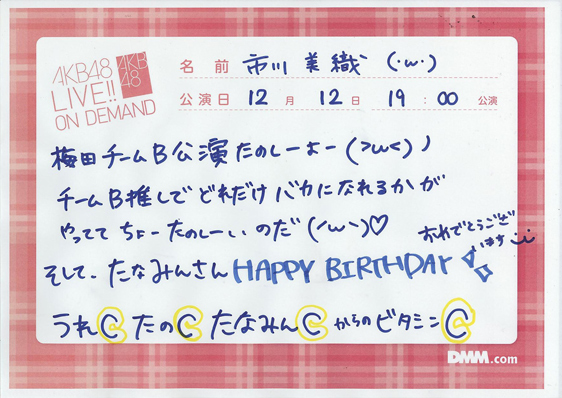 AKB48
LIVE!!
ON DEMAND
AKB
48
名前 市川美織 (・ω・)
公演日 12月12日 19:00 公演
梅田チームB公演たのしーよー(>ω<)ノ
チームB推しでどれだけバカになれるかが
やってて ちょーたのしーぃのだ(＾ω＾)♡
おめでとうござ
います
そして、たなみんさん HAPPY BIRTHDAY
うれC たのC たなみんC からの ビタミンC
DMM.com